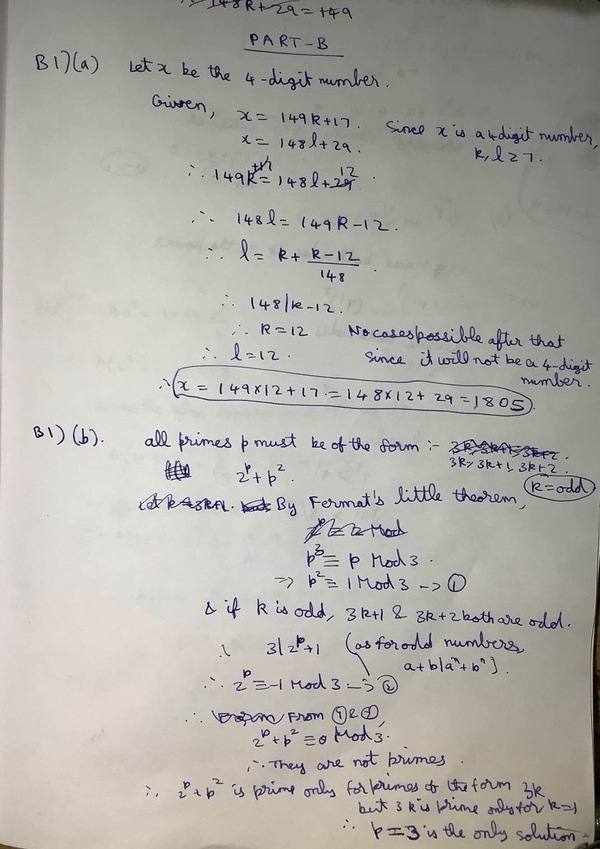 148k+29 = 149
PART-B
B1)(a) Let x be the 4-digit number.
Given, x = 149k+17. Since x is a 4 digit number,
x = 148l+29. k, l ≥ 7.
∴ 149k+17 = 148l+29 12
∴ 148l = 149k-12.
∴ l = k + k-12/148.
∴ 148/k-12.
∴ k=12 No cases possible after that
∴ l=12. Since it will not be a 4-digit
number.
∴ x = 149×12+17 = 148×12+29 = 1805.
B1)(b). all primes p must be of the form :- 3k, 3k+1, 3k+2.
3k, 3k+1, 3k+2.
2^p + p^2. k=odd
By Fermat's little theorem,
Mod
p^3 ≡ p Mod 3.
⇒ p^2 ≡ 1 Mod 3 -> ①
& if k is odd, 3k+1 & 3k+2 both are odd.
∴ 3/2^p+1 (as for odd numbers,
a+b/a^n+b^n).
∴ 2^p ≡ -1 Mod 3 -> ②
∴ From ① & ②,
2^p + p^2 ≡ 0 Mod 3.
∴ They are not primes.
∴ 2^p + p^2 is prime only for primes of the form 3k
but 3k is prime only for k=1
∴ p = 3 is the only solution.